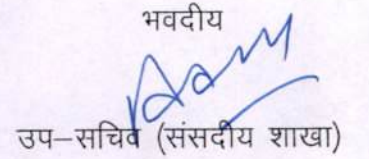 भवदीय
उप–सचिव (संसदीय शाखा)